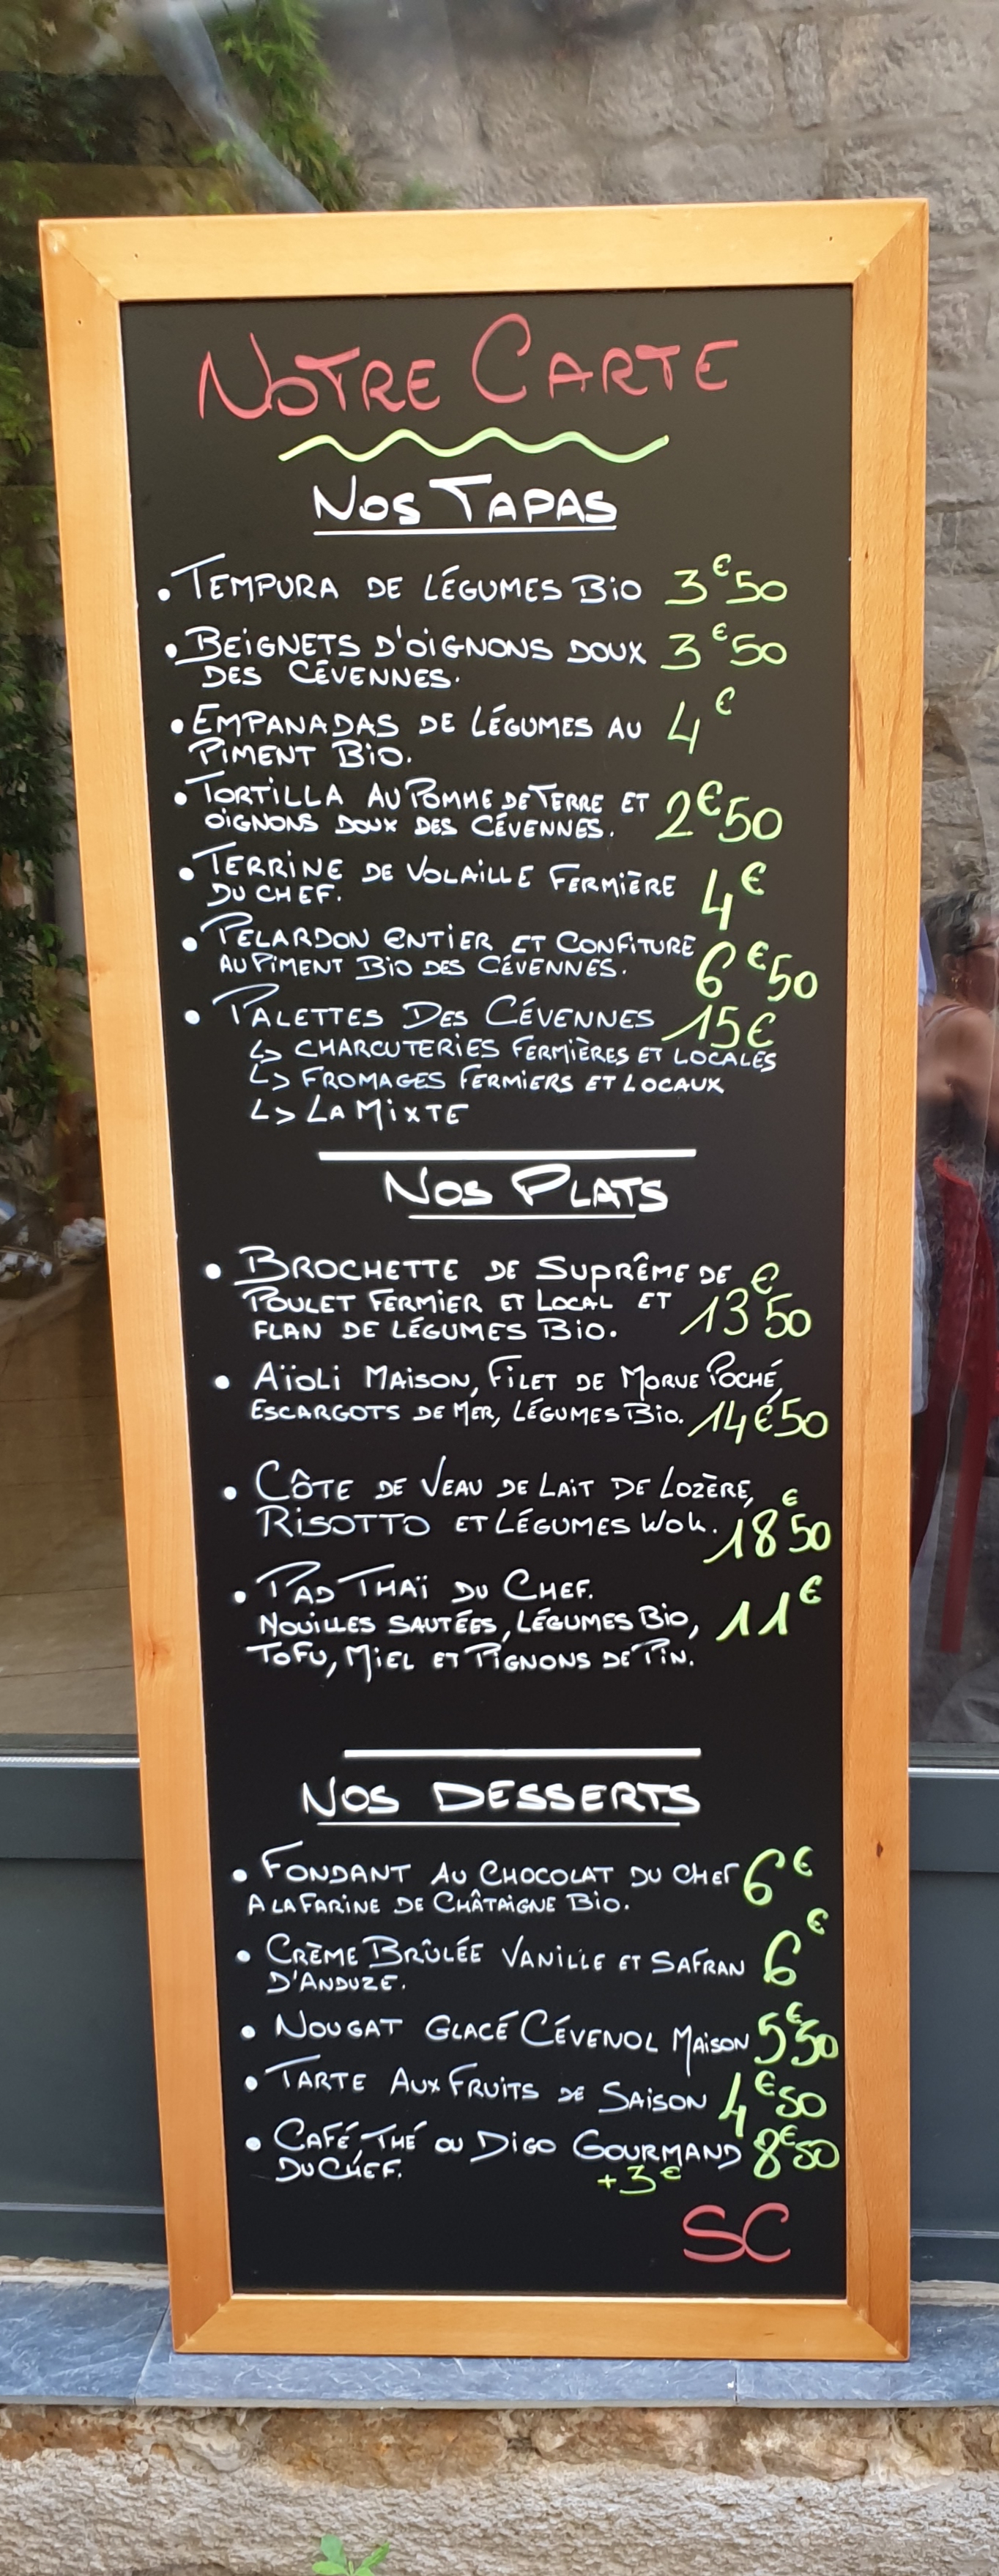 NOTRE CARTE
NOS TAPAS
• TEMPURA DE LÉGUMES BIO 3€50
• BEIGNETS D'OIGNONS DOUX 3€50
DES CÉVENNES.
• EMPANADAS DE LÉGUMES AU 4€
PIMENT BIO.
• TORTILLA AU POMME DE TERRE ET 2€50
OIGNONS DOUX DES CÉVENNES.
• TERRINE DE VOLAILLE FERMIÈRE 4€
DU CHEF.
• PELARDON ENTIER ET CONFITURE 6€50
AU PIMENT BIO DES CÉVENNES.
• PALETTES DES CÉVENNES 15€
↳ CHARCUTERIES FERMIÈRES ET LOCALES
↳ FROMAGES FERMIERS ET LOCAUX
↳ LA MIXTE
NOS PLATS
• BROCHETTE DE SUPRÊME DE
POULET FERMIER ET LOCAL ET 13€50
FLAN DE LÉGUMES BIO.
• AÏOLI MAISON, FILET DE MORUE POCHÉ,
ESCARGOTS DE MER, LÉGUMES BIO. 14€50
• CÔTE DE VEAU DE LAIT DE LOZÈRE,
RISOTTO ET LÉGUMES WOK. 18€50
• PAD THAÏ DU CHEF.
NOUILLES SAUTÉES, LÉGUMES BIO, 11€
TOFU, MIEL ET PIGNONS DE PIN.
NOS DESSERTS
• FONDANT AU CHOCOLAT DU CHEF 6€
A LA FARINE DE CHÂTAIGNE BIO.
• CRÈME BRÛLÉE VANILLE ET SAFRAN 6€
D'ANDUZE.
• NOUGAT GLACÉ CÉVENOL MAISON 5€50
• TARTE AUX FRUITS DE SAISON 4€50
• CAFÉ, THÉ OU DIGO GOURMAND 8€50
DU CHEF. +3€
SC